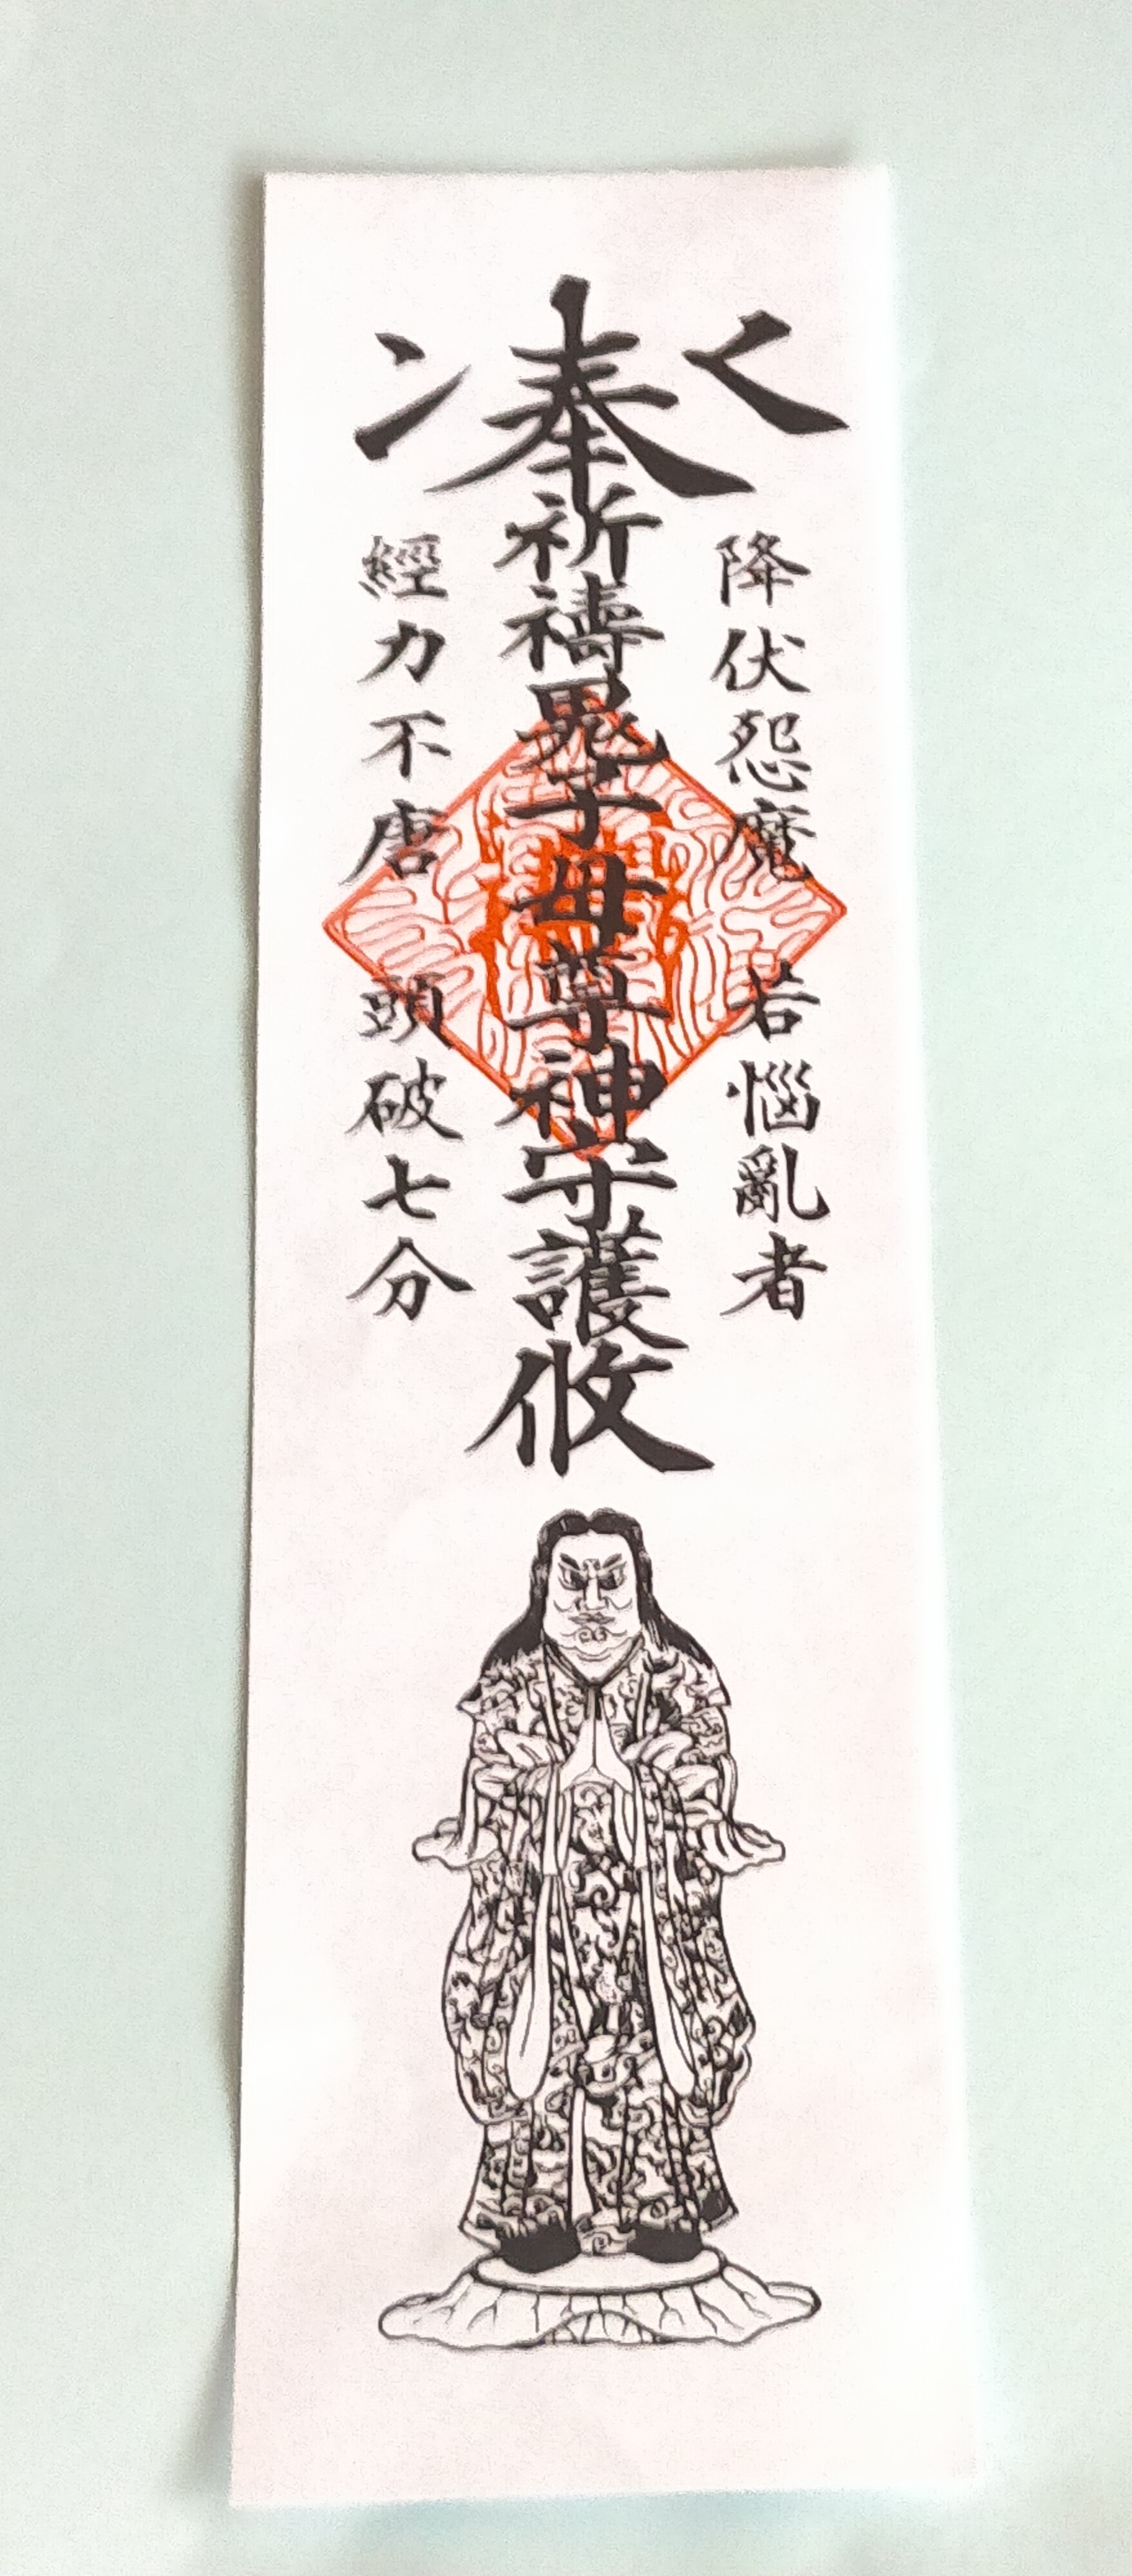 く
降伏怨魔 若惱亂者
奉祈禱鬼子母尊神守護攸
ン
經力不唐 頭破七分